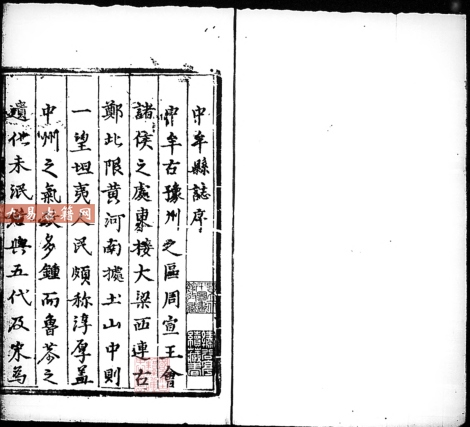 中牟縣誌序
中牟古豫州之區周宣王會
諸侯之處東接大梁西連古
鄭北限黄河南據土山中則
一望坦夷人民頗称淳厚盖
中州之氣多鍾而魯恭之
遺化未泯若與五代及宋為